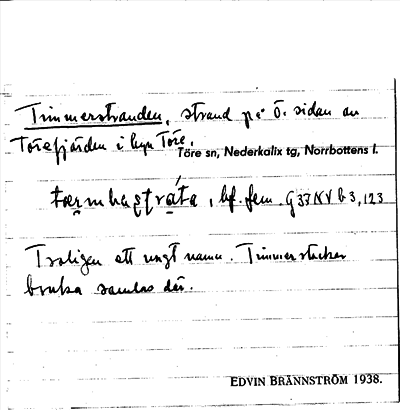 Timmerstranden, strand på ö. sidan av
Törefjärden i byn Töre.
Töre sn, Nederkalix tg, Norrbottens l.
bf. fem. G 33 NV b 3, 123
Troligen ett ungt namn. Timmerstockar
bruka samlas där.
EDVIN BRÄNNSTRÖM 1938.